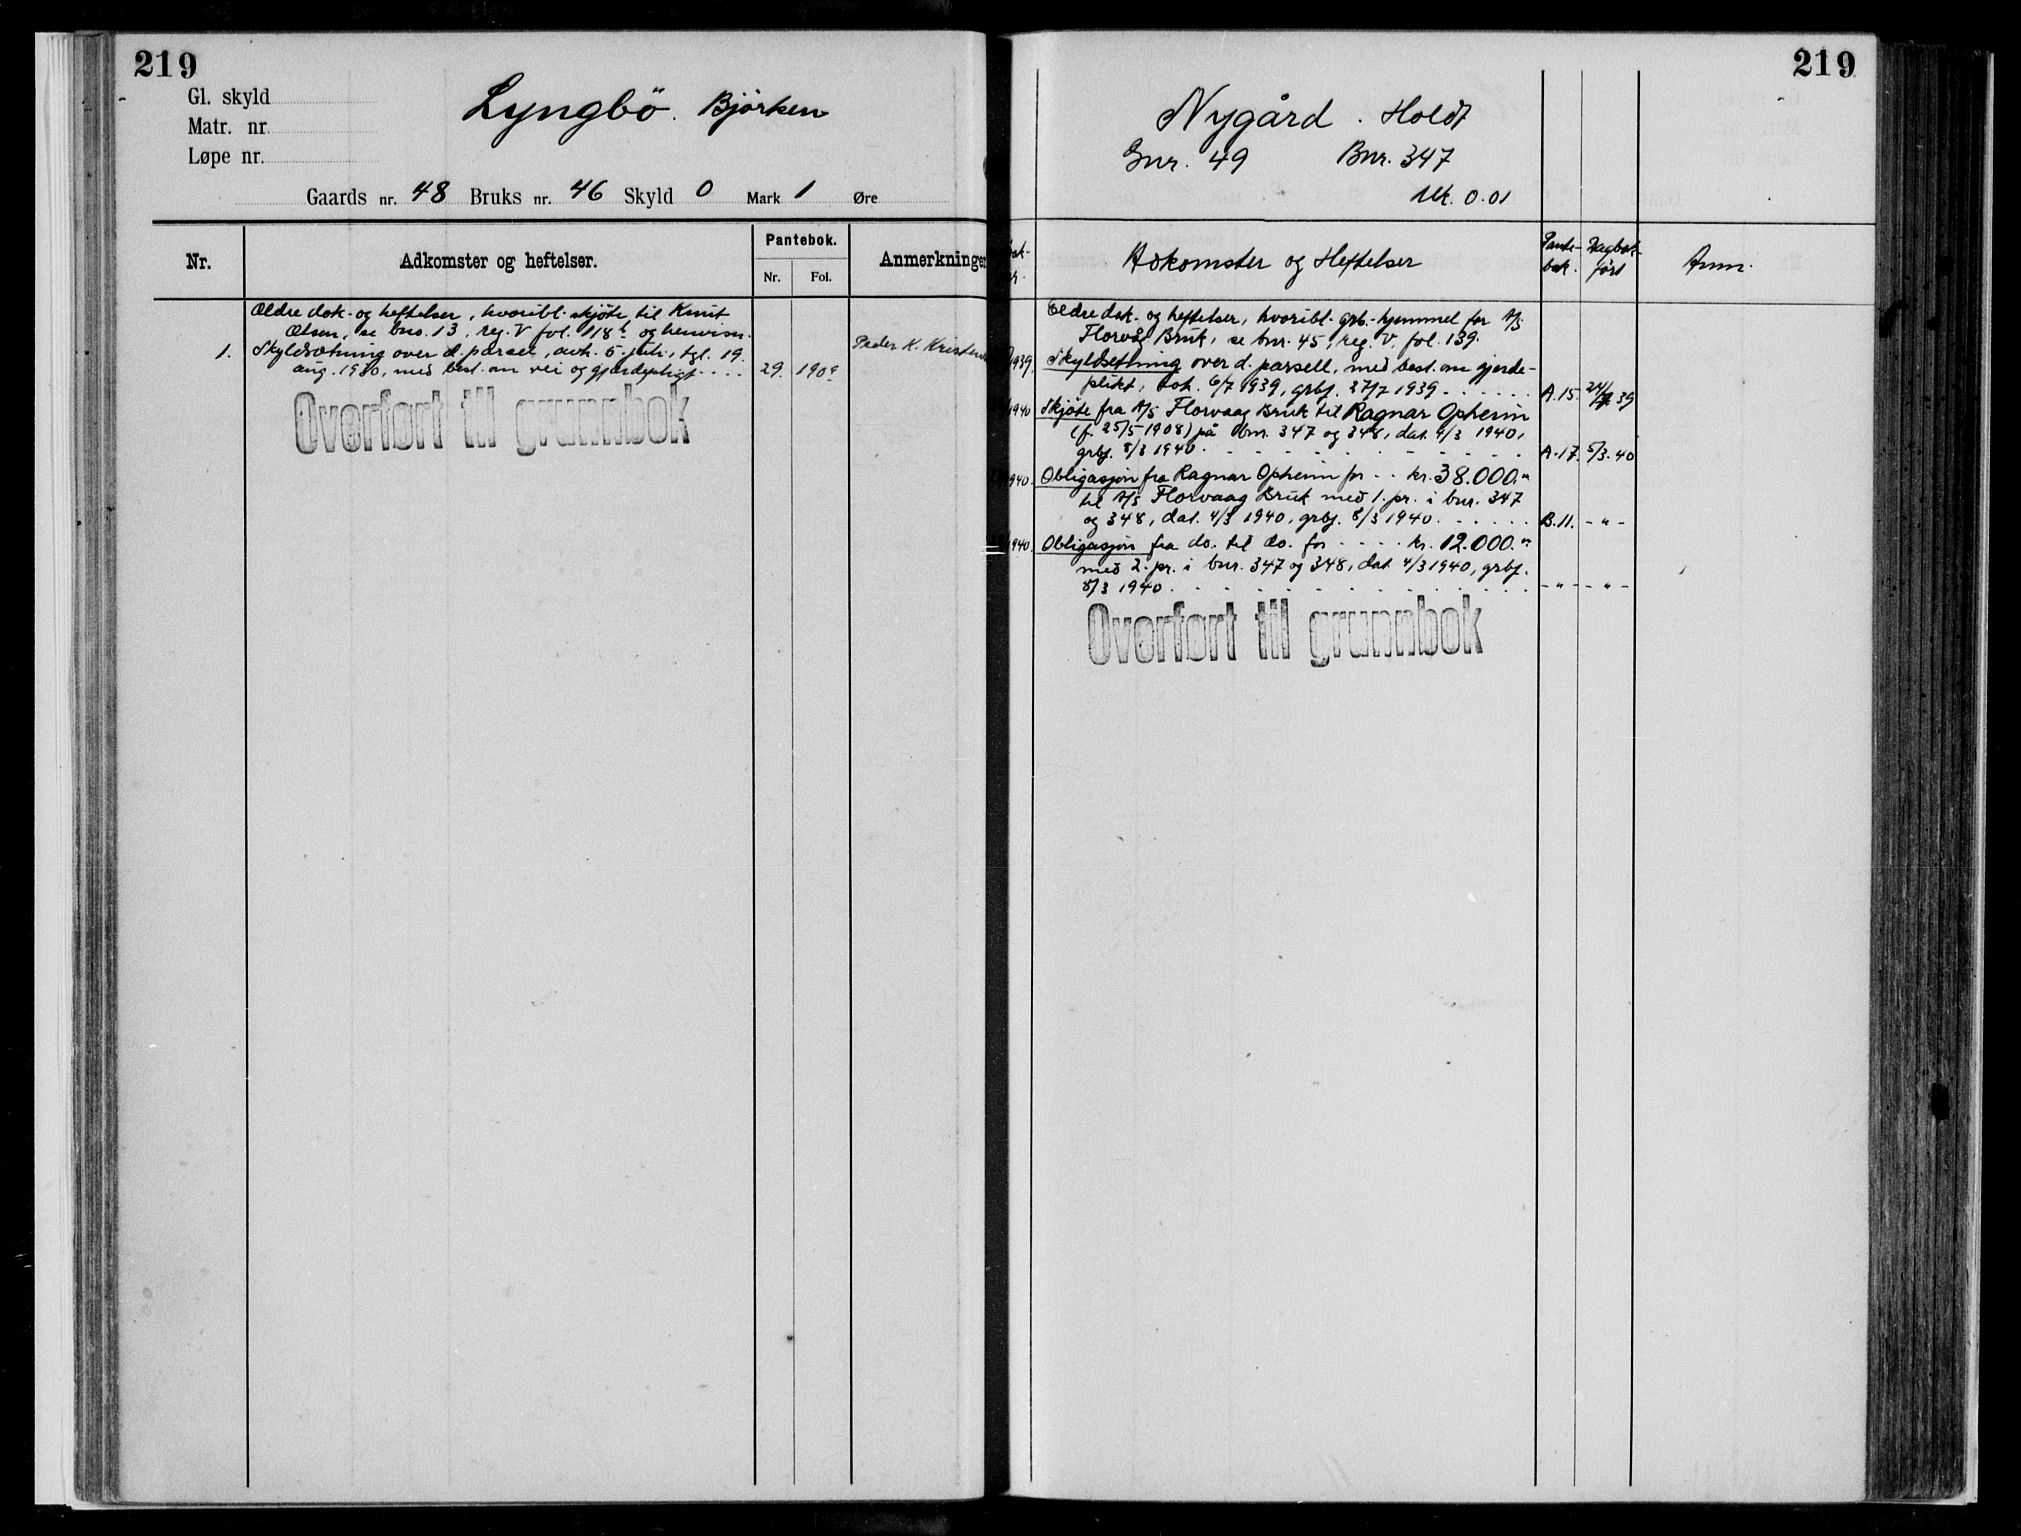 219
Gl. skyld
Matr. nr.
Løpe nr.
Lyngbö. Bjørken
Gaards nr. 48 Bruks nr. 46 Skyld 0 Mark 1 Øre
Nr.
Adkomster og heftelser.
Pantebok.
Nr.
Fol.
Anmerkninger
Ældre dok- og heftelser, hvoribl. skjöte til Knut
Olsen, se bno. 13, reg. V fol. 118 og henvisn.
1. Skyldsætning over d. parsel, avh. 5. juli, tgl. 19.
aug. 1920, med best. om vei og gjærdepligt - - - -
29. 190
Peder K.
Overført til grunnbok
219
Nygård. Holdt
Gnr. 49 Bnr. 347
Mk. 0.01
Adkomster og Heftelser
Pante-
bok.
Dagbok-
ført
Anm.
Eldre dok- og heftelser, hvoribl. grb.-hjemmel for A/s
Florvåg Bruk, se bnr. 45, reg. V. fol. 139.
1939 Skyldsetning over d. parsell, med best. om gjerde-
plikt, dok. 6/7 1939, grbf. 27/7 1939 . . . . . .
A.15. 24/7 39
1940 Skjøte fra A/s Florvaag Bruk til Ragnar Opheim
(f. 25/5 1908) på bnr. 347 og 348, dat. 4/3 1940,
grbf. 8/3 1940 . . . . . . . . . . .
A.17. 5/3.40
1940. Obligasjon fra Ragnar Opheim for - - kr. 38.000.-
til A/s Florvaag Bruk med 1. pr. i bnr. 347
og 348, dat. 4/3 1940, grbf. 8/3 1940. . . . . .
B.11. - " -
1940. Obligasjon fra do. til do. for - - - - kr. 12.000.-
med 2. pr. i bnr. 347 og 348, dat. 4/3 1940, grbf.
8/3 1940 . . . . . . . . . . . .
- " - - " -
Overført til grunnbok